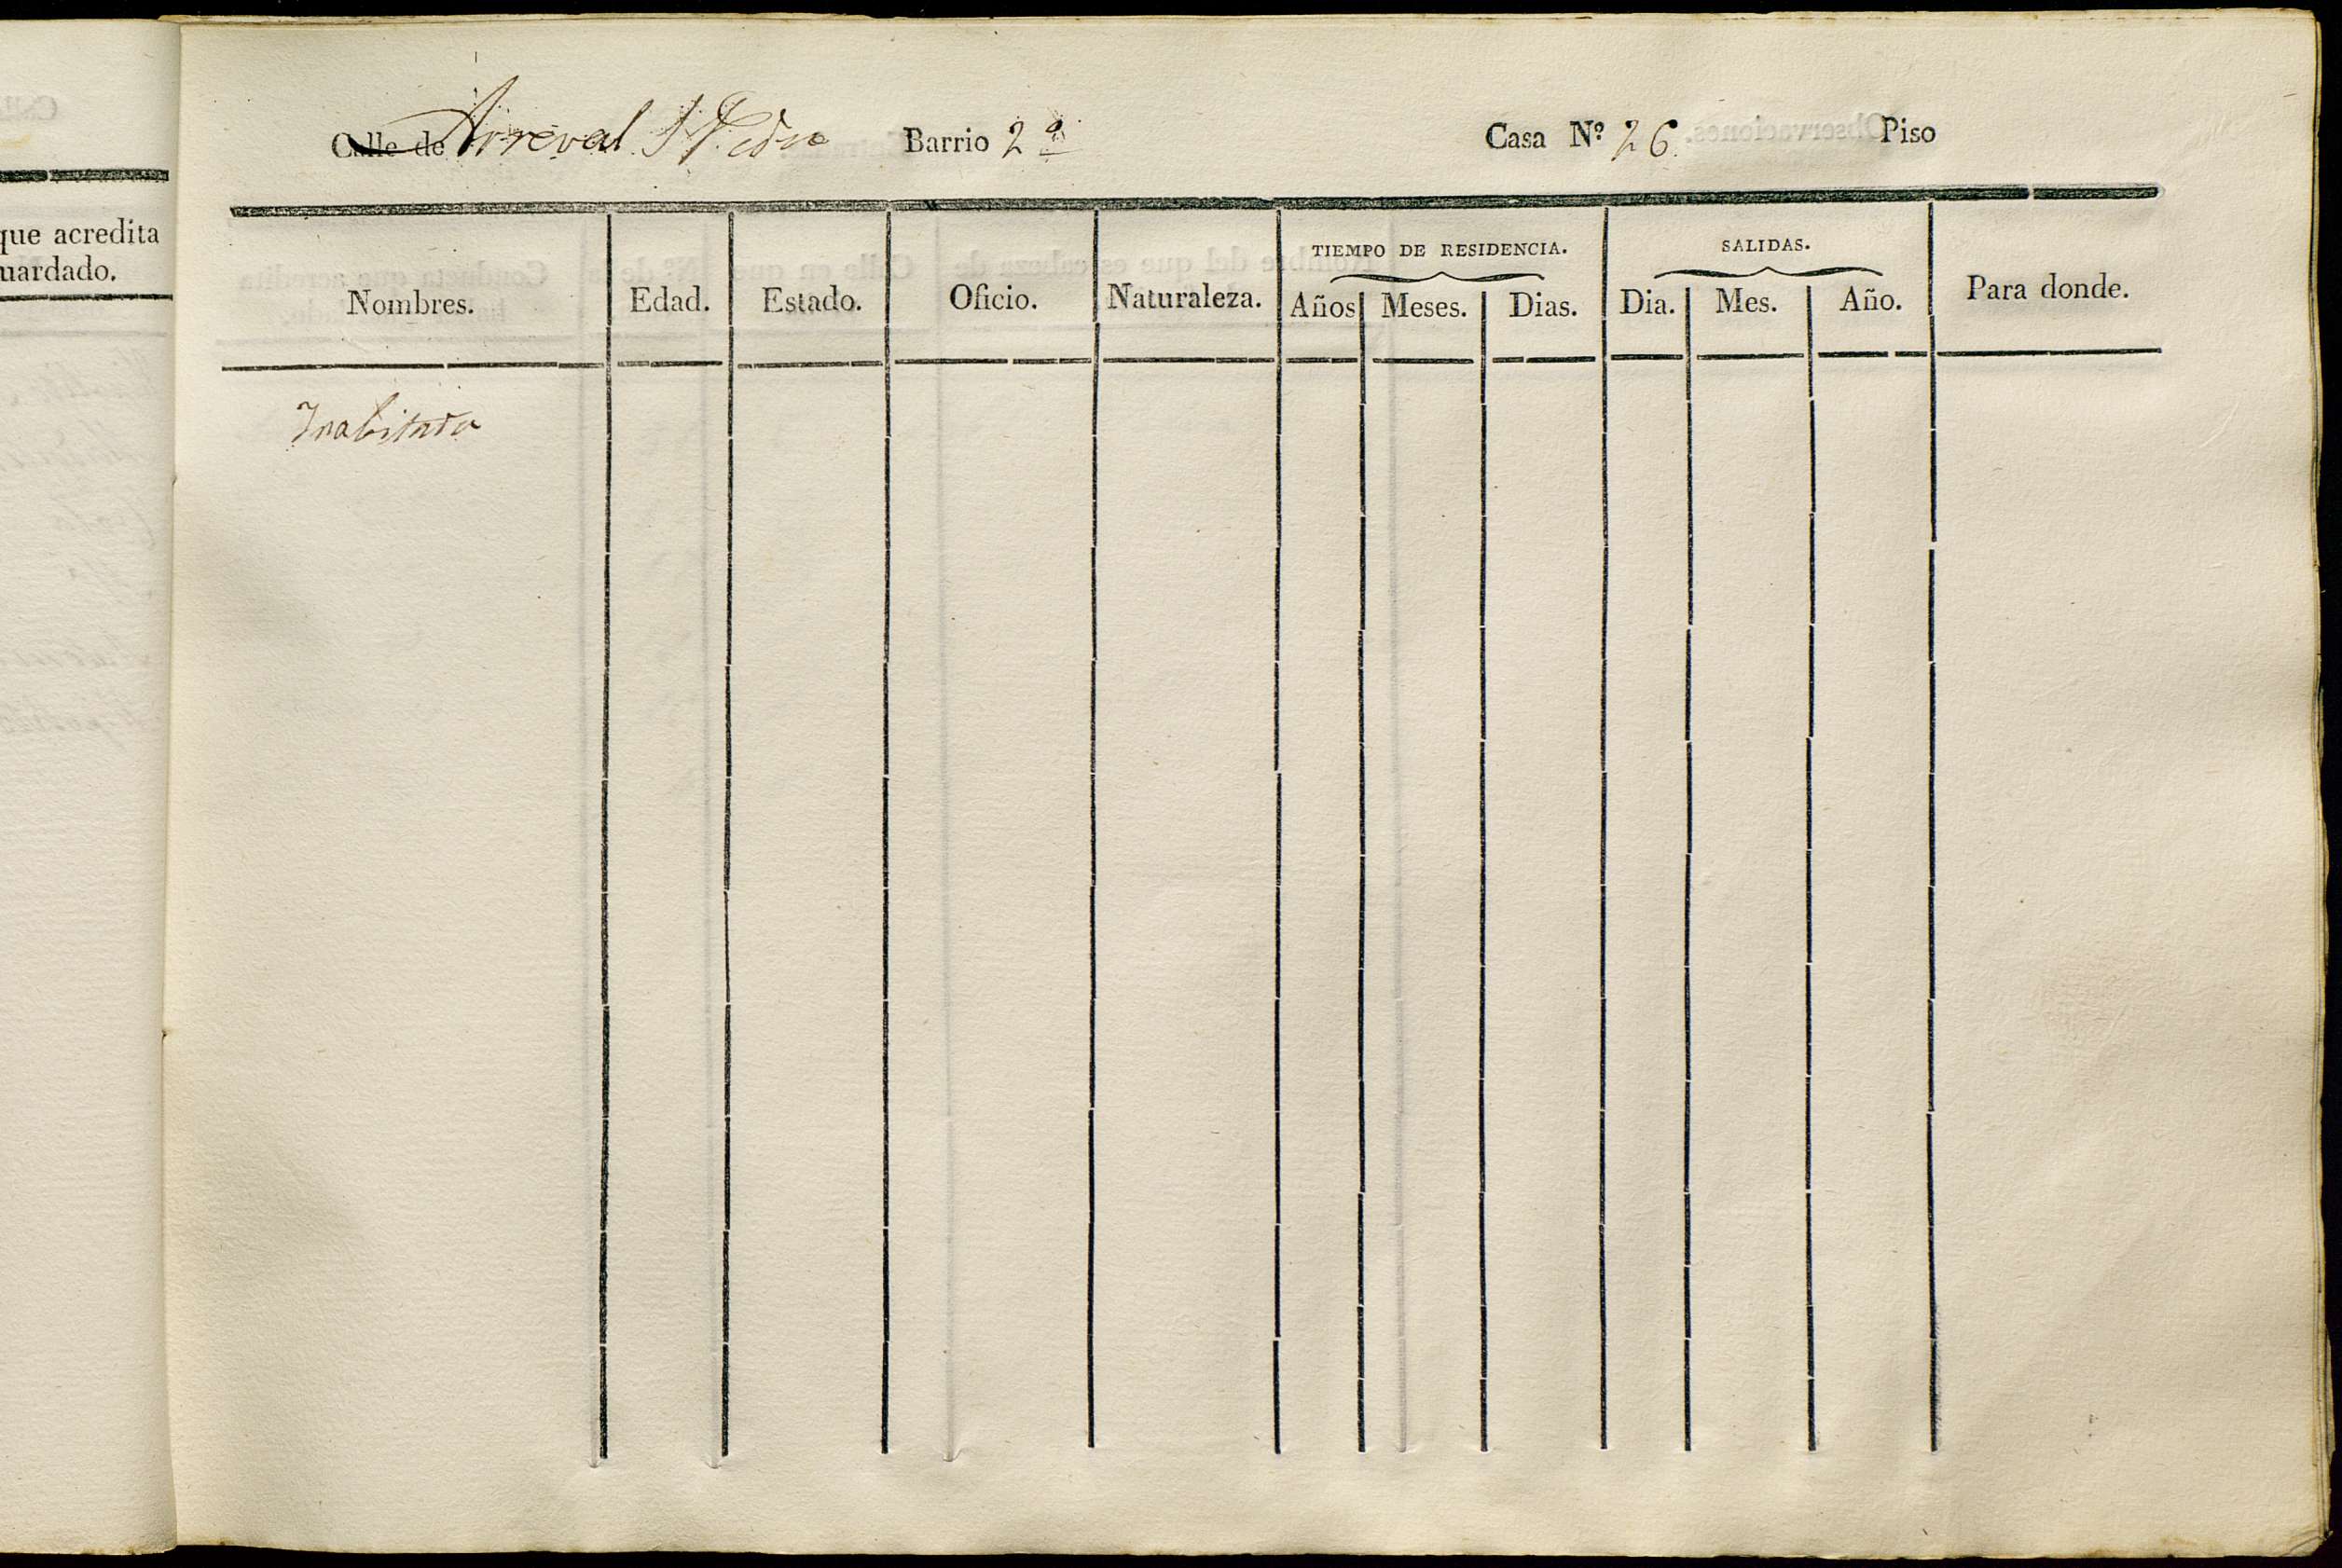 que acredita
uardado.
Calle de Arreval S. Pedro Barrio 2º Casa Nº 26. Piso
TIEMPO DE RESIDENCIA. SALIDAS.
Nombres. Edad. Estado. Oficio. Naturaleza. Años Meses. Dias. Dia. Mes. Año. Para donde.
Inabitada